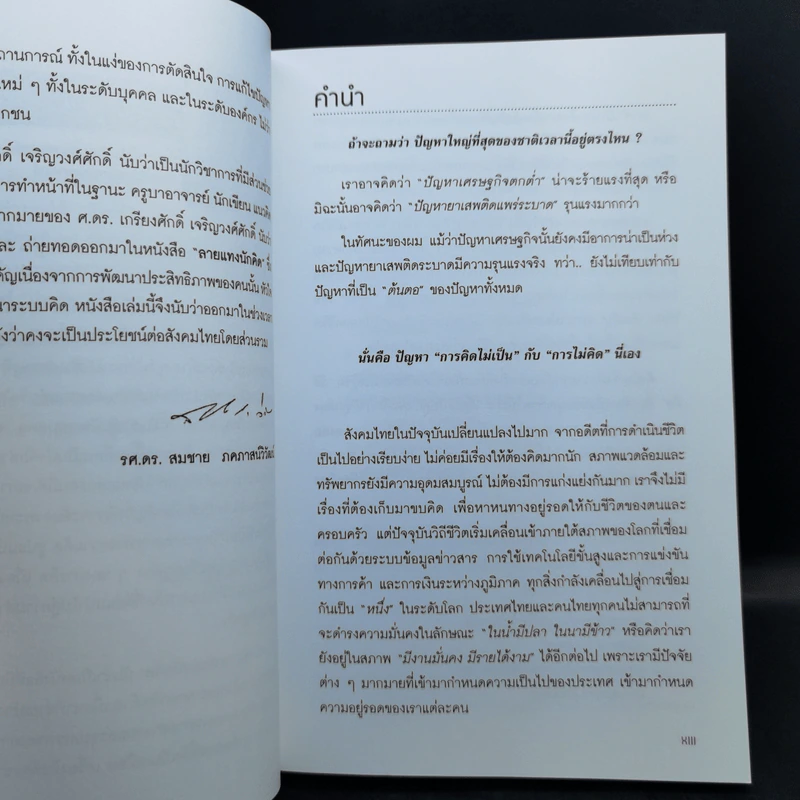 ถานการณ์ ทั้งในแง่ของการตัดสินใจ การแก้ไขปัญหา
ใหม่ ๆ ทั้งในระดับบุคคล และในระดับองค์กร ไม่ว่า
กชน
กดิ์ เจริญวงศ์ศักดิ์ นับว่าเป็นนักวิชาการที่มีส่วนช่วย
การทำหน้าที่ในฐานะ ครูบาอาจารย์ นักเขียน แนวคิด
ากมายของ ศ.ดร. เกรียงศักดิ์ เจริญวงศ์ศักดิ์ นับว่า
และ ถ่ายทอดออกมาในหนังสือ “ลายแทงนักคิด”
คัญเนื่องจากการพัฒนาประสิทธิภาพของคนนั้น หัวใจ
นาระบบคิด หนังสือเล่มนี้จึงนับว่าออกมาในช่วงเวลา
วังว่าคงจะเป็นประโยชน์ต่อสังคมไทยโดยส่วนรวม
รศ.ดร. สมชาย ภคภาสน์วิวัฒน์
คำนำ
ถ้าจะถามว่า ปัญหาใหญ่ที่สุดของชาติเวลานี้อยู่ตรงไหน ?
เราอาจคิดว่า “ปัญหาเศรษฐกิจตกต่ำ” น่าจะร้ายแรงที่สุด หรือ
มิฉะนั้นอาจคิดว่า “ปัญหายาเสพติดแพร่ระบาด” รุนแรงมากกว่า
ในทัศนะของผม แม้ว่าปัญหาเศรษฐกิจนั้นยังคงมีอาการน่าเป็นห่วง
และปัญหายาเสพติดระบาดมีความรุนแรงจริง ทว่า.. ยังไม่เทียบเท่ากับ
ปัญหาที่เป็น “ต้นตอ” ของปัญหาทั้งหมด
นั่นคือ ปัญหา “การคิดไม่เป็น” กับ “การไม่คิด” นี่เอง
สังคมไทยในปัจจุบันเปลี่ยนแปลงไปมาก จากอดีตที่การดำเนินชีวิต
เป็นไปอย่างเรียบง่าย ไม่ค่อยมีเรื่องให้ต้องคิดมากนัก สภาพแวดล้อมและ
ทรัพยากรยังมีความอุดมสมบูรณ์ ไม่ต้องมีการแก่งแย่งกันมาก เราจึงไม่มี
เรื่องที่ต้องเก็บมาขบคิด เพื่อหาหนทางอยู่รอดให้กับชีวิตของตนและ
ครอบครัว แต่ปัจจุบันวิถีชีวิตเริ่มเคลื่อนเข้าภายใต้สภาพของโลกที่เชื่อม
ต่อกันด้วยระบบข้อมูลข่าวสาร การใช้เทคโนโลยีชั้นสูงและการแข่งขัน
ทางการค้า และการเงินระหว่างภูมิภาค ทุกสิ่งกำลังเคลื่อนไปสู่การเชื่อม
กันเป็น “หนึ่ง” ในระดับโลก ประเทศไทยและคนไทยทุกคนไม่สามารถที่
จะดำรงความมั่นคงในลักษณะ “ในน้ำมีปลา ในนามีข้าว” หรือคิดว่าเรา
ยังอยู่ในสภาพ “มีงานมั่นคง มีรายได้งาม” ได้อีกต่อไป เพราะเรามีปัจจัย
ต่าง ๆ มากมายที่เข้ามากำหนดความเป็นไปของประเทศ เข้ามากำหนด
ความอยู่รอดของเราแต่ละคน
XIII